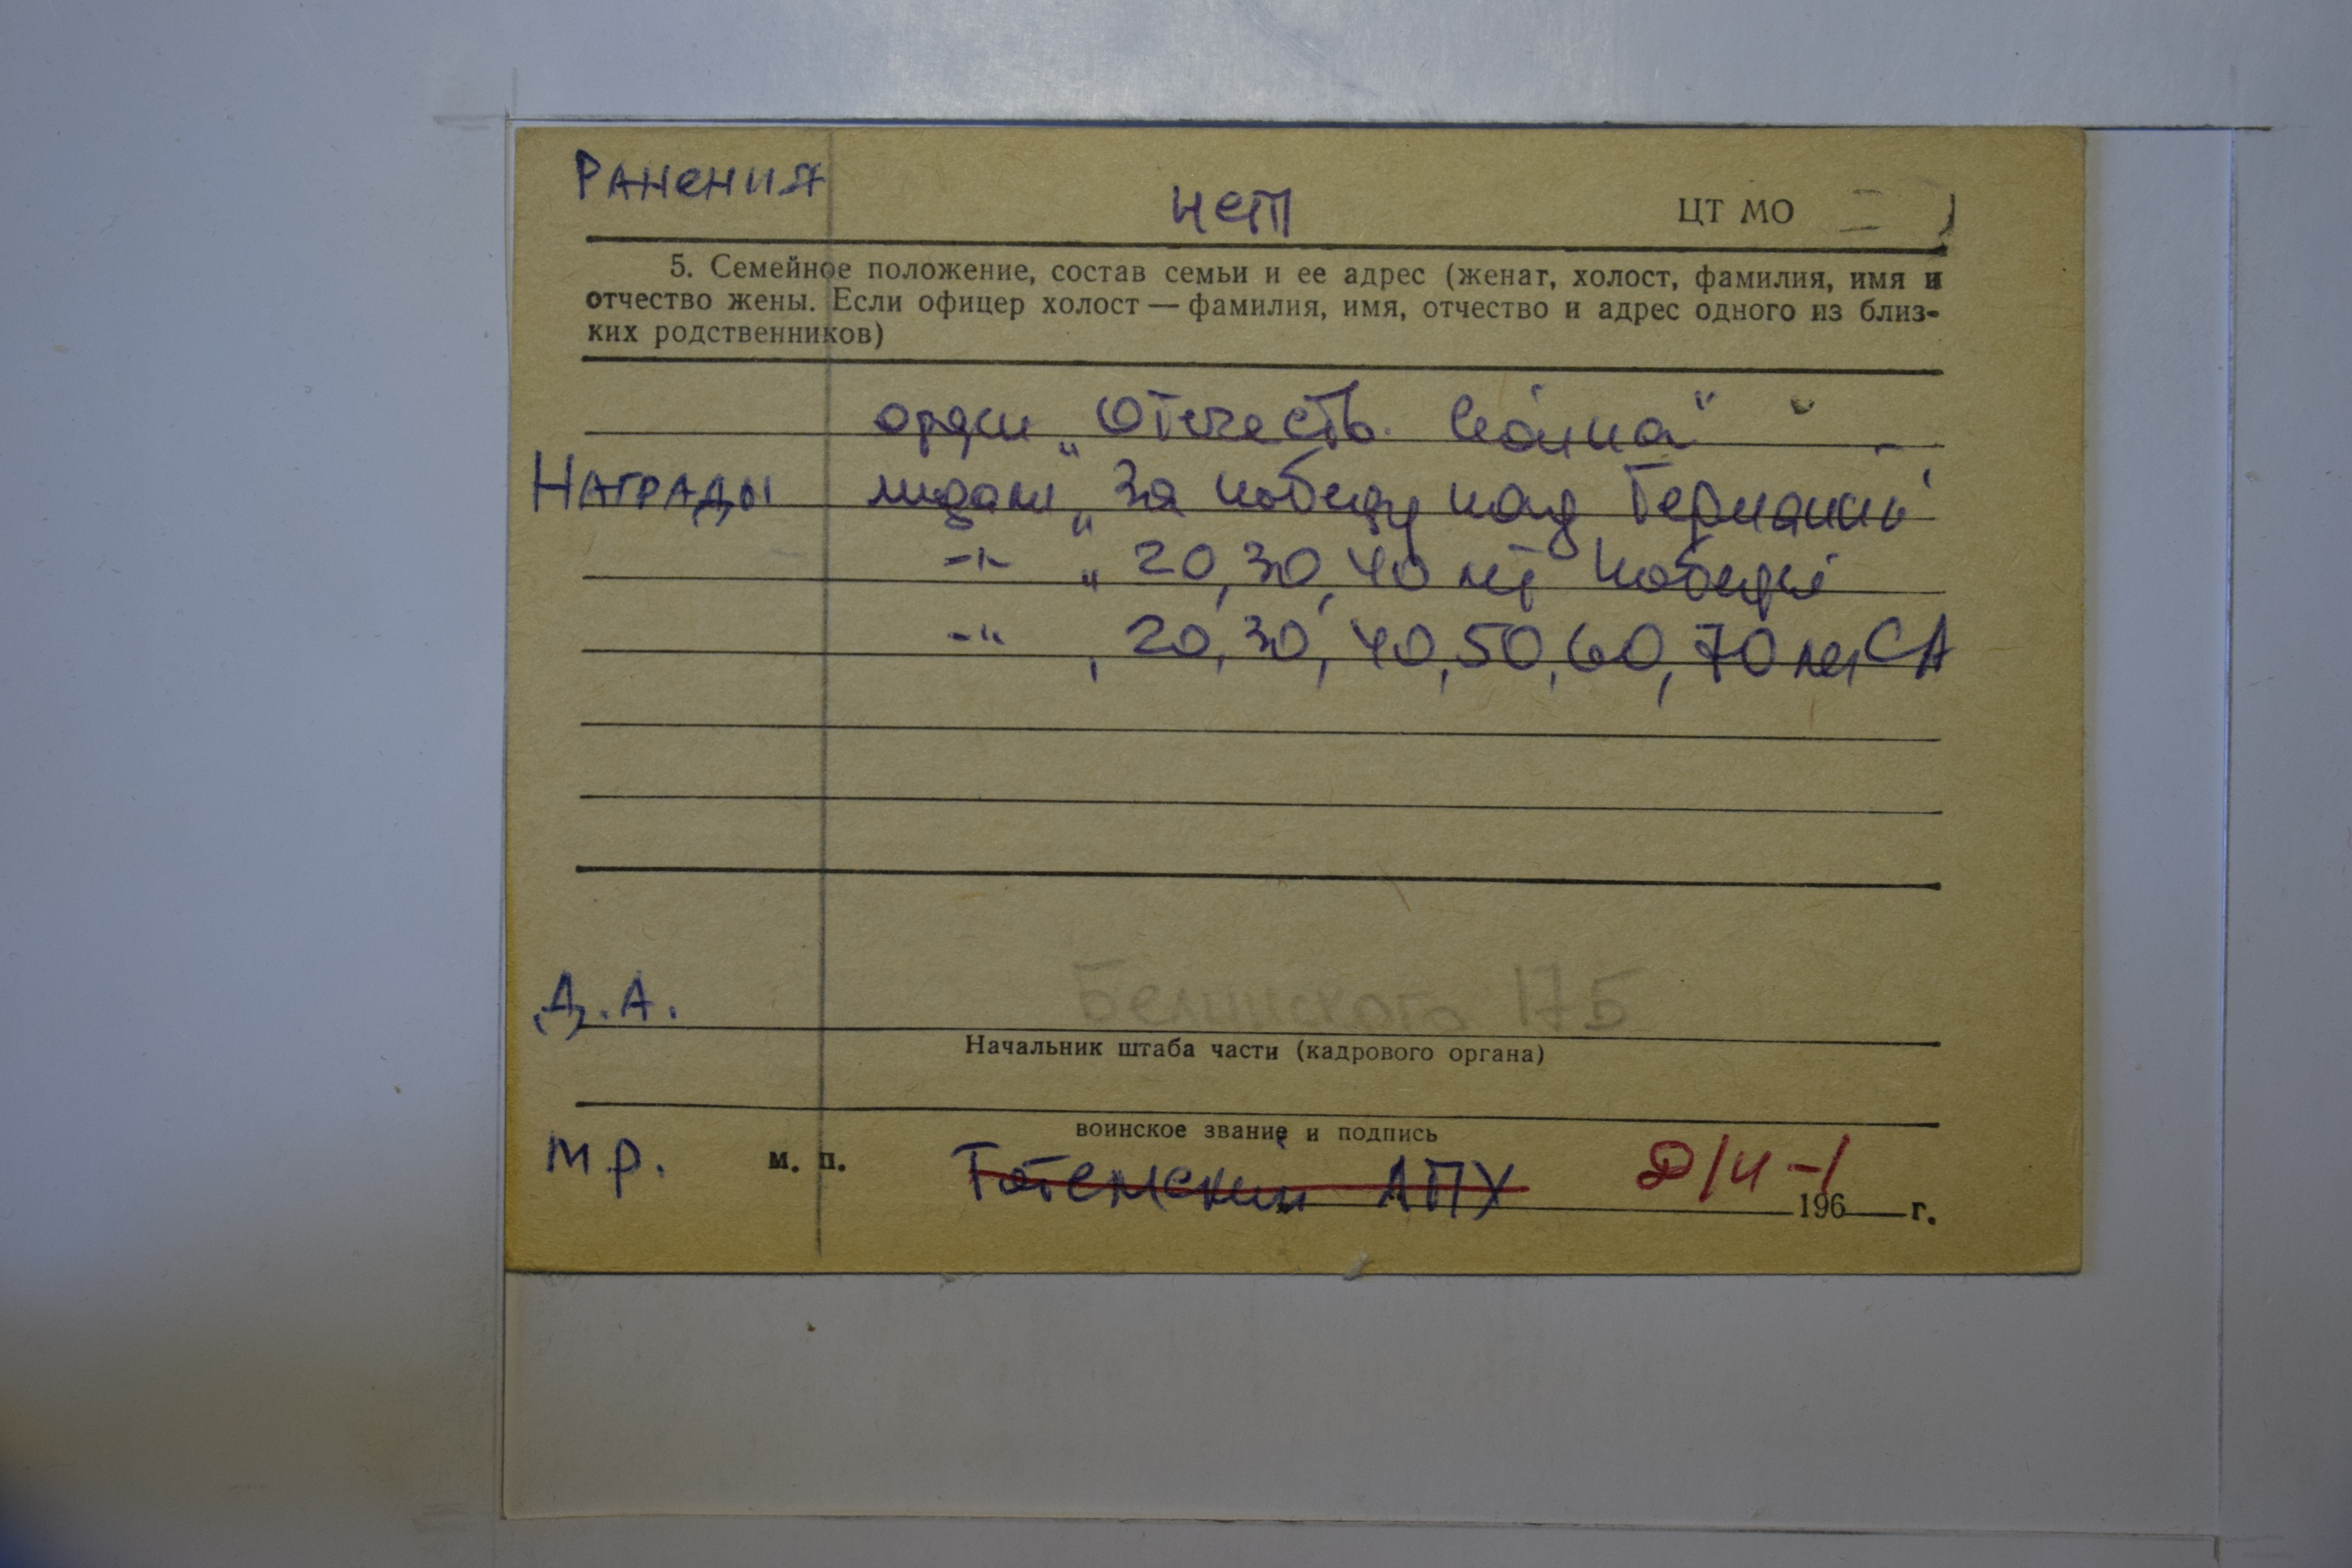 РАНЕНИЯ нет ЦТ МО
5. Семейное положение, состав семьи и ее адрес (женат, холост, фамилия, имя и
отчество жены. Если офицер холост — фамилия, имя, отчество и адрес одного из близ-
ких родственников)
орден „Отечеств. война"
НАГРАДЫ медали „За победу над Германии"
-"- „20, 30, 40 лет победы
-"- „20, 30, 40, 50, 60, 70 лет СА
Д.А. Белинского 17Б
Начальник штаба части (кадрового органа)
воинское звание и подпись
М.р. м. п. Тотемский ЛПХ
196 г.